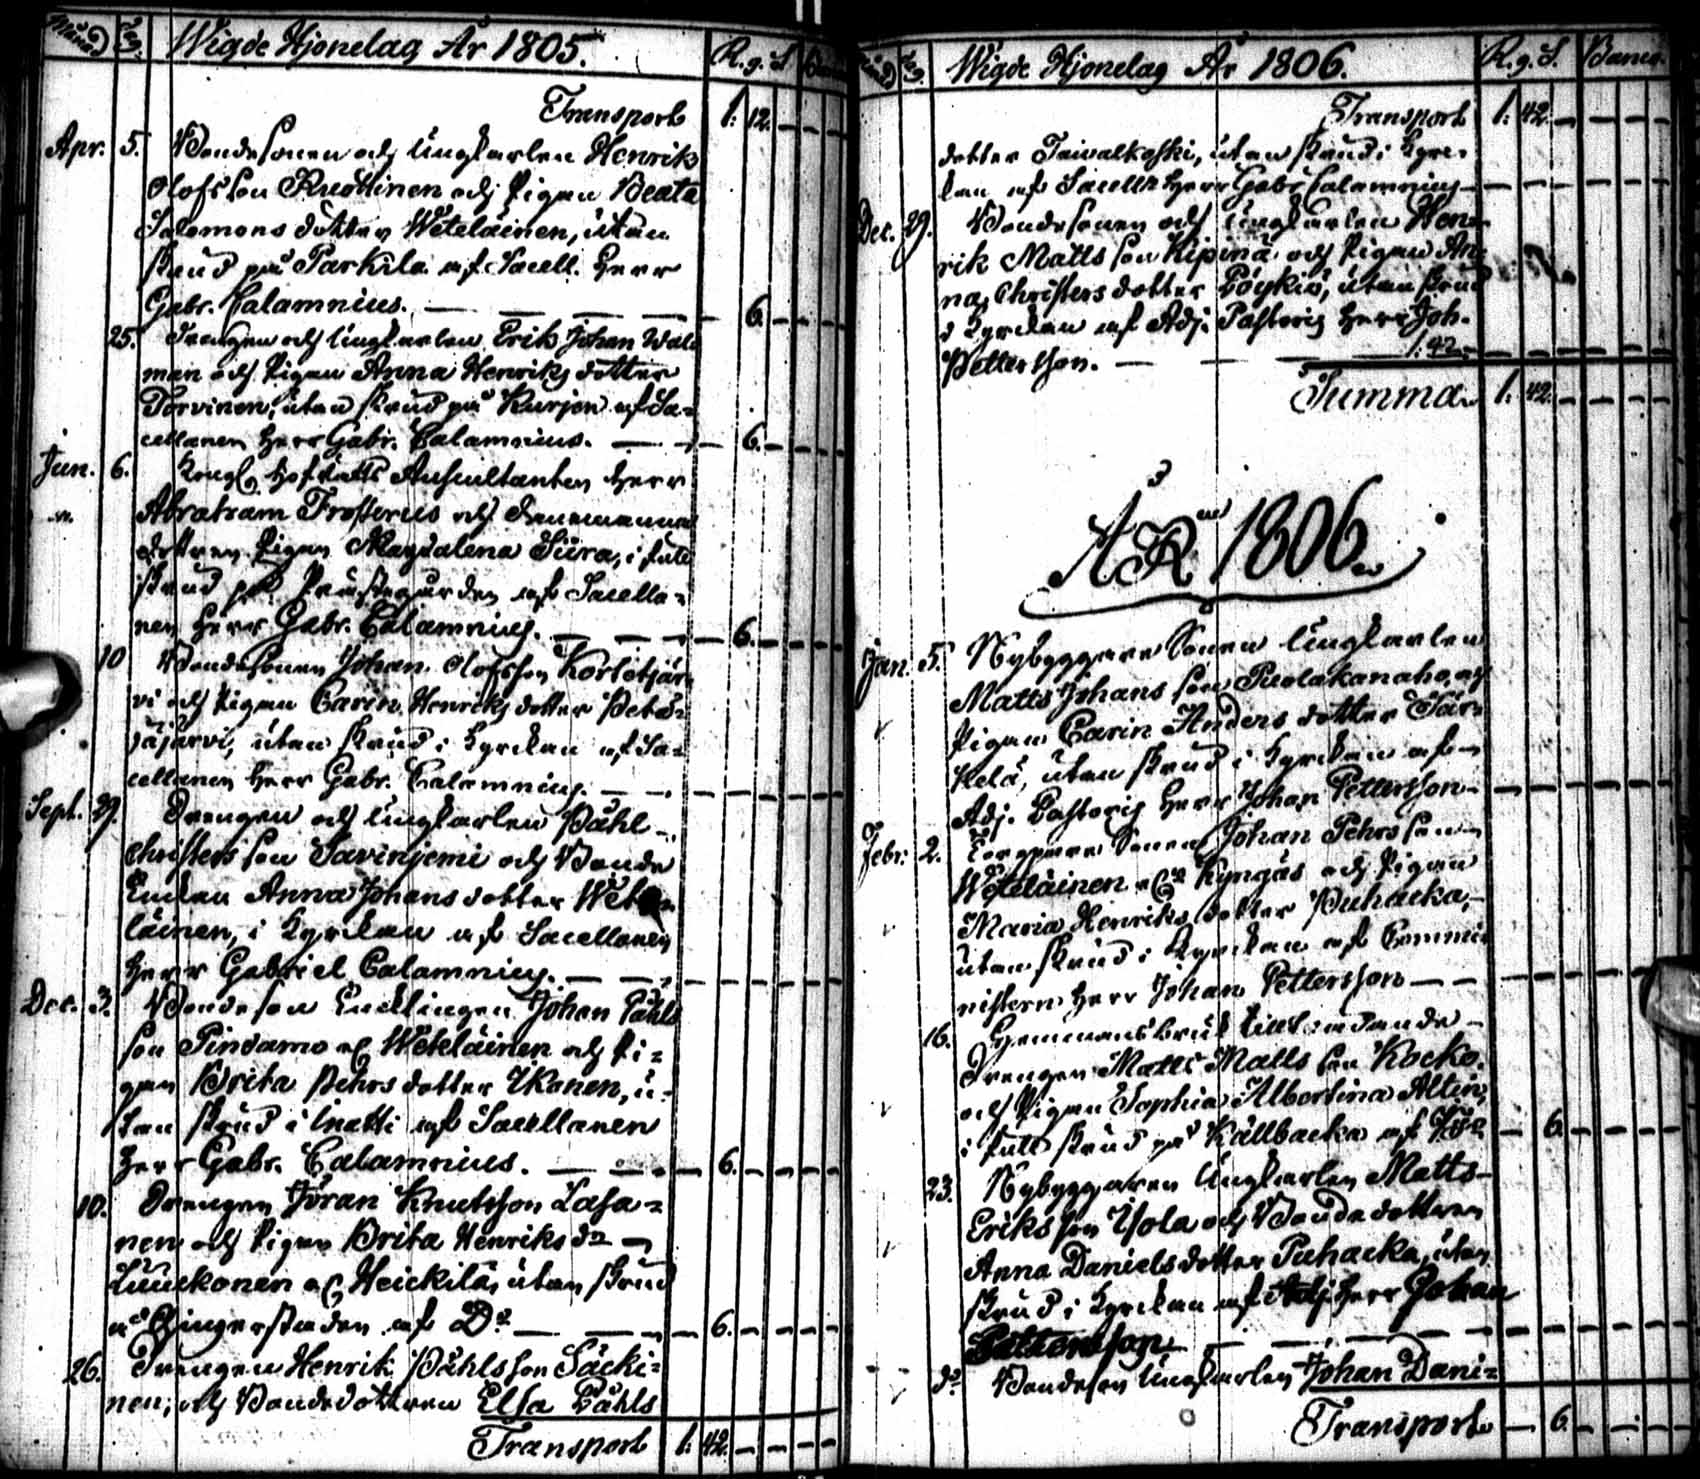 Månad Dag Wigde Hjonelag År 1805. R. g. S. Banco
Transport 1: 12.
Apr. 5. Bondesonen och Ungkarlen Henrik
Olofsson Ruottinen och Pigan Beata
Salomons dotter Weteläinen, utan
skrud på Parkila af Sacell. Herr
Gabr. Calamnius. 6.
25. Drengen och Ungkarlen Erik Johan Wal
man och Pigan Anna Henriks dotter
Torvinen, utan skrud på Kurjen af Sa=
cellanen Herr Gabr. Calamnius. 6.
Jun. 6. Kongl. Hofrätts Auscultanten Herr
Abraham Frosterus och
dottren Pigan Magdalena Siira, i full
skrud på Prästegården af Sacella=
nen Herr Gabr. Calamnius. 6.
10 Bondesonen Johan Olofsson Kortetjär
vi och Pigan Carin Henriks dotter Petä=
jäjärvi, utan skrud i Kyrckan af Sa=
cellanen Herr Gabr. Calamnius.
Sept. 29. Drengen och Ungkarlen Påhl
Christers son Savinjemi och Bonde
Enckan Anna Johans dotter Wete
läinen, i Kyrckan af Sacellanen
Herr Gabriel Calamnius.
Dec. 3. Bondeson Encklingen Johan Påhls
son Pindamo Weteläinen och Pi=
gan Brita Pehrs dotter Ikonen, u=
tan skrud i Unatti af Sacellanen
Herr Gabr. Calamnius. 6.
10. Drengen Jöran Knutsson Lasa=
nen och Pigan Brita Henriks dr
Luuckonen Heickilä, utan skrud
af Do 6.
26. Drengen Henrik Påhlsson Säcki=
nen, och Bondedottren Elsa Påhls
Transport 1: 42.
Månad Dag Wigde Hjonelag År 1806. R. g. S. Banco.
Transport 1. 42.
dotter Taivalkoski, utan skrud i Kyrc=
kan af Sacelln Herr Gabr Calamnius
Dec. 29. Bondesonen och Ungkarlen Hen
rik Matts son Kipinä och Pigan An
na Christers dotter Pöykiö, utan skrud
i Kyrckan af Adj. Pastoris Herr Joh.
Pettersson. 1:42.
Summa 1. 42.
ÅR 1806.
Jan. 5. Nybyggare Sonen Ungkarlen
Matts Johans son Puolakanaho, och
Pigan Carin Anders dotter Sär=
kelä, utan skrud i Kyrckan af
Adj. Pastoris Herr Johan Pettersson
Febr: 2. Torpare Sonen Johan Pehrs son
Weteläinen Kyngäs och Pigan
Maria Henriks dotter Puhacka,
utan skrud i Kyrckan af Commi
nistern Herr Johan Pettersson
16. Hemmansbruk tilltr
Drengen Matts Matts son Kocko.
och Pigan Sophia Albertina Alten,
i full skrud på Källbacka af 6.
23. Nybyggaren Ungkarlen Matts
Eriks son Ylola och Bondedottren
Anna Daniels dotter Puhacka, utan
skrud i Kyrckan af Adj. Herr Johan
Pettersson
do Bondeson Ungkarlen Johan Dani=
Transport 6.